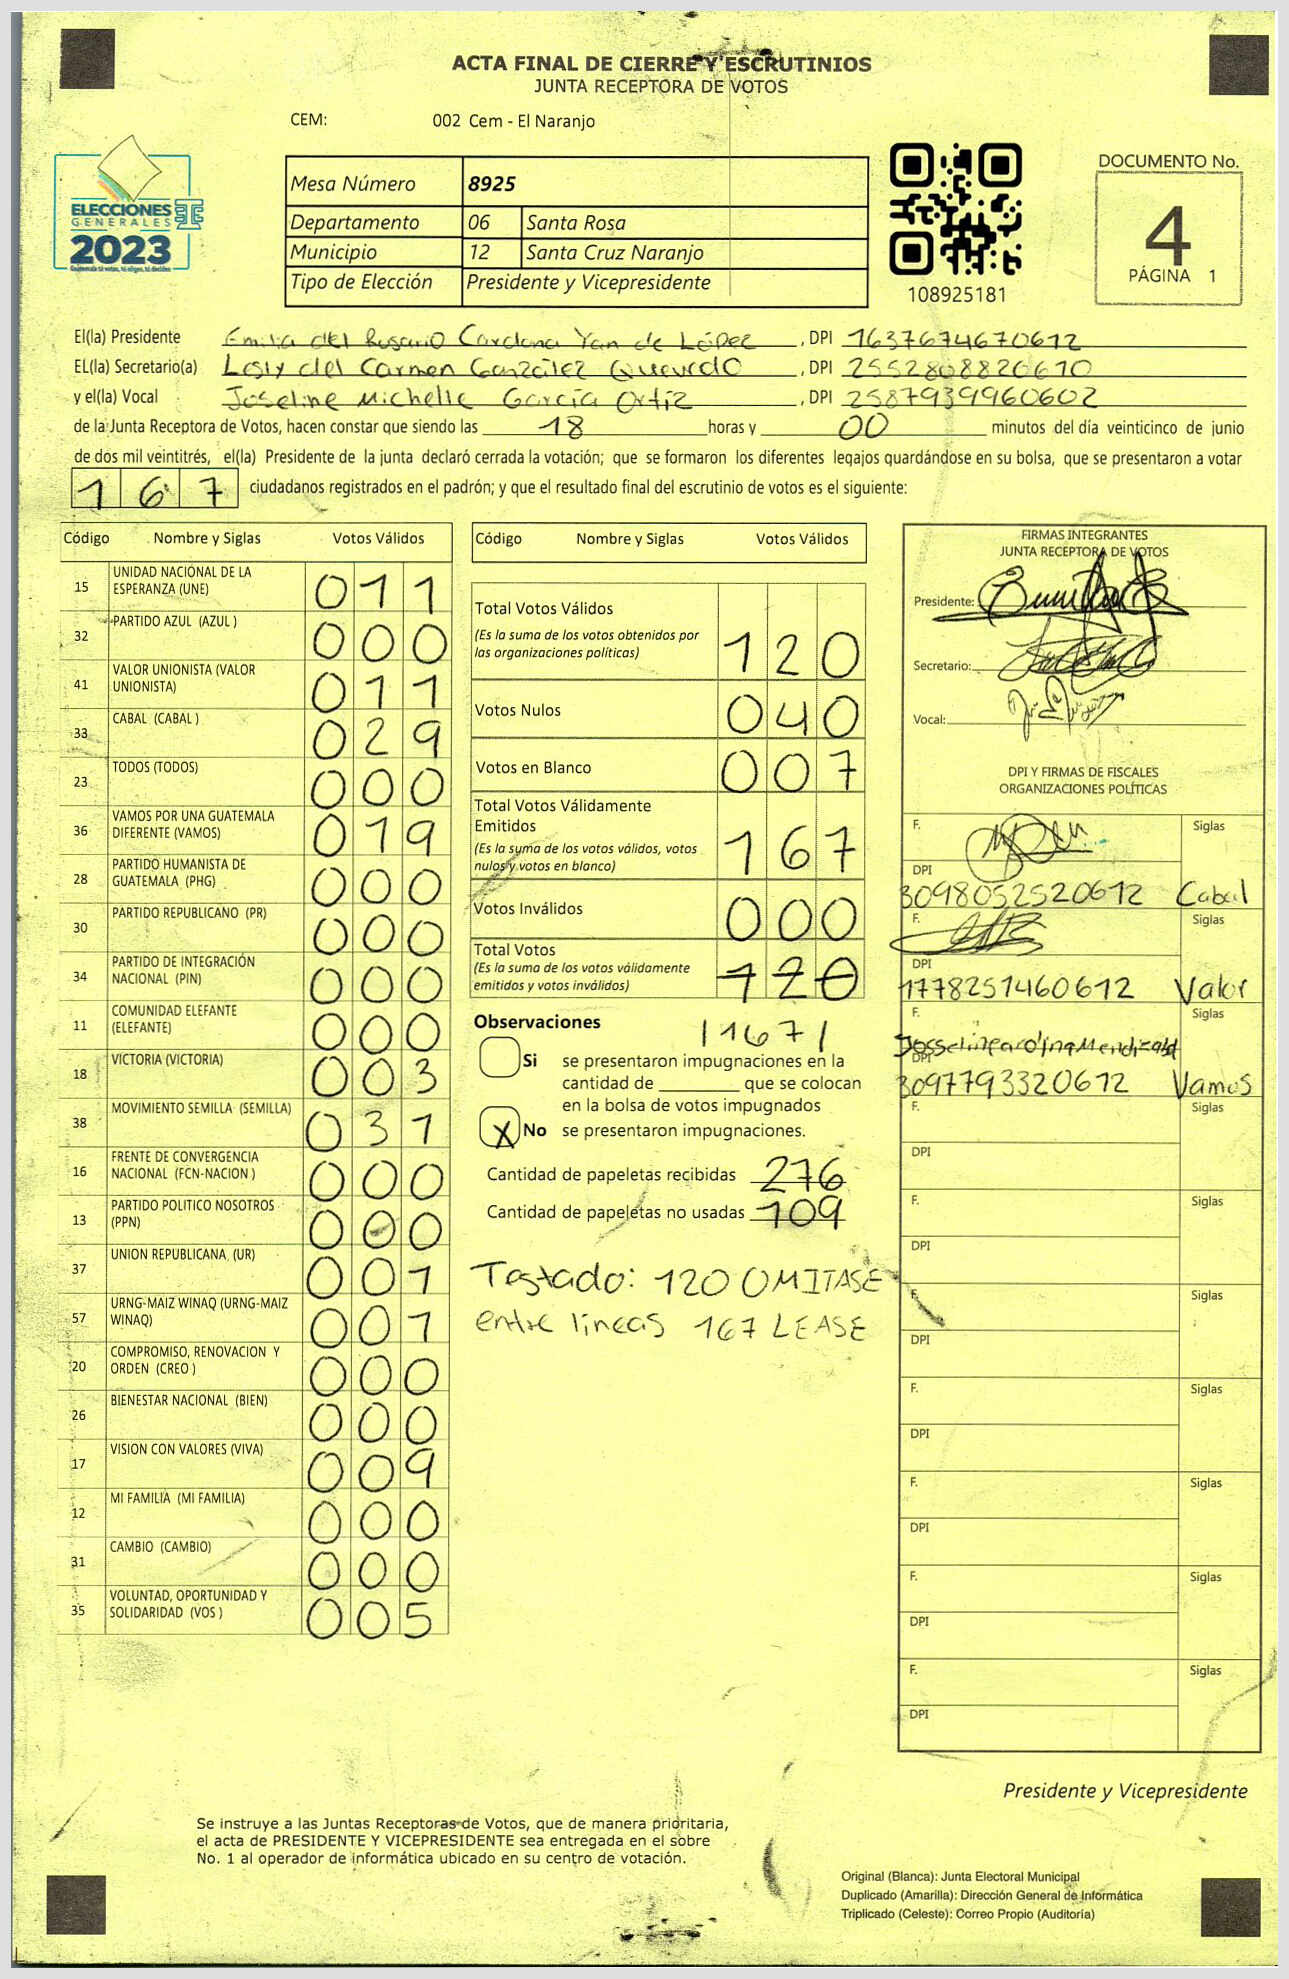 ACTA FINAL DE CIERRE Y ESCRUTINIOS
JUNTA RECEPTORA DE VOTOS
CEM: 002 Cem - El Naranjo
ELECCIONES
GENERALES
2023
Guatemala tú votas, tú eliges, tú decides
Mesa Número 8925
Departamento 06 Santa Rosa
Municipio 12 Santa Cruz Naranjo
Tipo de Elección Presidente y Vicepresidente
108925181
DOCUMENTO No.
4
PÁGINA 1
El(la) Presidente Emilia del Rosario Cardona Yan de López, DPI 1637674670612
EL(la) Secretario(a) Lesly del Carmen González Quevedo, DPI 2552808820610
y el(la) Vocal Joseline Michelle García Ortiz, DPI 2587939960602
de la Junta Receptora de Votos, hacen constar que siendo las 18 horas y 00 minutos del día veinticinco de junio
de dos mil veintitrés, el(la) Presidente de la junta declaró cerrada la votación; que se formaron los diferentes legajos guardándose en su bolsa, que se presentaron a votar
167 ciudadanos registrados en el padrón; y que el resultado final del escrutinio de votos es el siguiente:
Código Nombre y Siglas Votos Válidos
15 UNIDAD NACIONAL DE LA
ESPERANZA (UNE) 011
32 PARTIDO AZUL (AZUL ) 000
41 VALOR UNIONISTA (VALOR
UNIONISTA) 011
33 CABAL (CABAL ) 029
23 TODOS (TODOS) 000
36 VAMOS POR UNA GUATEMALA
DIFERENTE (VAMOS) 019
28 PARTIDO HUMANISTA DE
GUATEMALA (PHG) 000
30 PARTIDO REPUBLICANO (PR) 000
34 PARTIDO DE INTEGRACIÓN
NACIONAL (PIN) 000
11 COMUNIDAD ELEFANTE
(ELEFANTE) 000
18 VICTORIA (VICTORIA) 003
38 MOVIMIENTO SEMILLA (SEMILLA) 031
16 FRENTE DE CONVERGENCIA
NACIONAL (FCN-NACION ) 000
13 PARTIDO POLITICO NOSOTROS
(PPN) 000
37 UNION REPUBLICANA (UR) 001
57 URNG-MAIZ WINAQ (URNG-MAIZ
WINAQ) 001
20 COMPROMISO, RENOVACION Y
ORDEN (CREO ) 000
26 BIENESTAR NACIONAL (BIEN) 000
17 VISION CON VALORES (VIVA) 009
12 MI FAMILIA (MI FAMILIA) 000
31 CAMBIO (CAMBIO) 000
35 VOLUNTAD, OPORTUNIDAD Y
SOLIDARIDAD (VOS ) 005
Código Nombre y Siglas Votos Válidos
Total Votos Válidos
(Es la suma de los votos obtenidos por
las organizaciones políticas) 120
Votos Nulos 040
Votos en Blanco 007
Total Votos Válidamente
Emitidos
(Es la suma de los votos válidos, votos
nulos y votos en blanco) 167
Votos Inválidos 000
Total Votos
(Es la suma de los votos válidamente
emitidos y votos inválidos) 120
Observaciones |167|
Si se presentaron impugnaciones en la
cantidad de ________ que se colocan
en la bolsa de votos impugnados
X No se presentaron impugnaciones.
Cantidad de papeletas recibidas 276
Cantidad de papeletas no usadas 109
Testado: 120 OMITASE
entre lineas 167 LEASE
FIRMAS INTEGRANTES
JUNTA RECEPTORA DE VOTOS
Presidente:
Secretario:
Vocal:
DPI Y FIRMAS DE FISCALES
ORGANIZACIONES POLÍTICAS
F. Siglas
DPI
3098052520612 Cabal
F. Siglas
DPI
1778251460612 Valor
F. Siglas
DPI
3097793320612 Vamos
F. Siglas
DPI
F. Siglas
DPI
F. Siglas
DPI
F. Siglas
DPI
F. Siglas
DPI
F. Siglas
DPI
F. Siglas
DPI
Presidente y Vicepresidente
Se instruye a las Juntas Receptoras de Votos, que de manera prioritaria,
el acta de PRESIDENTE Y VICEPRESIDENTE sea entregada en el sobre
No. 1 al operador de informática ubicado en su centro de votación.
Original (Blanca): Junta Electoral Municipal
Duplicado (Amarilla): Dirección General de Informática
Triplicado (Celeste): Correo Propio (Auditoría)